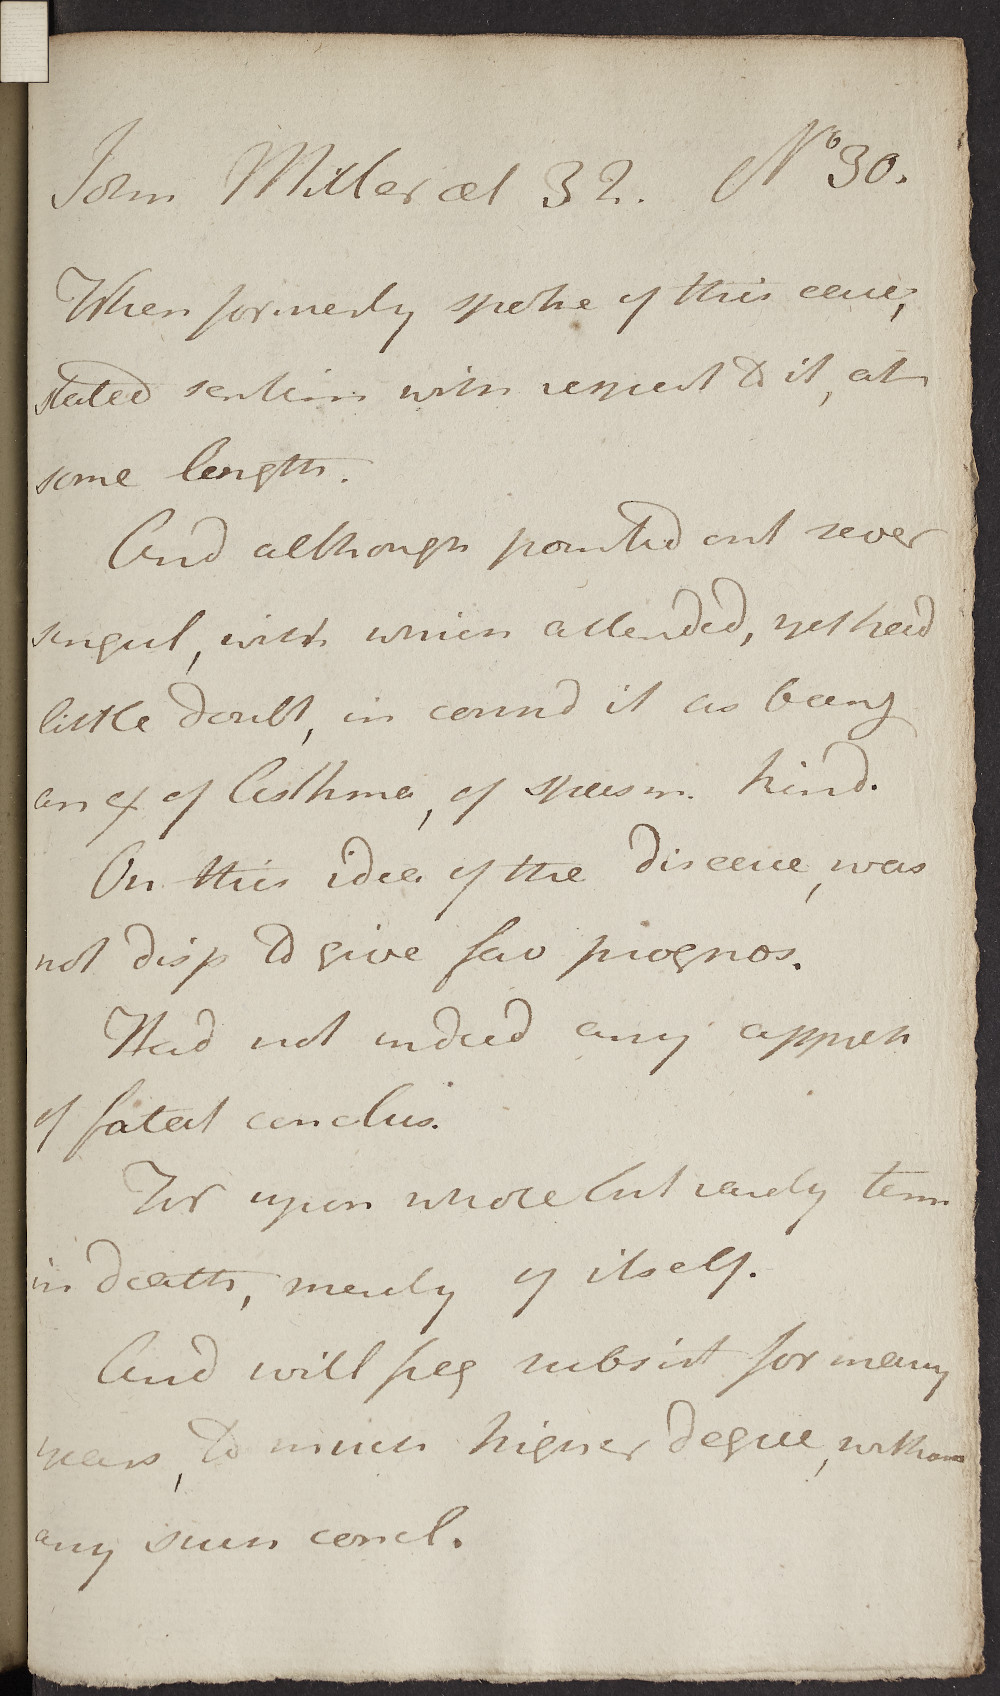 John Miller æt 32. No 30.
When formerly spoke of this case,
stated sentim with respect to it, at
some length.
And although pointed out sever
singul, with which attended, yet had
little doubt, in consid it as being
an ex of Asthma, of spasm. kind.
On this idea of the disease, was
not disp to give fav prognos.
Had not indeed any appreh
of fatal conclus.
For upon whole but rarely term
in death, merely of itself.
And will freq subsist for many
years, to much higher degree, without
any such concl.